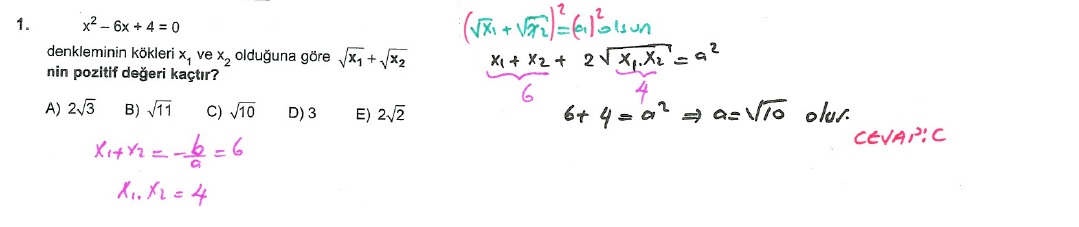 1. x² – 6x + 4 = 0
denkleminin kökleri x₁ ve x₂ olduğuna göre √x₁ + √x₂
nin pozitif değeri kaçtır?
A) 2√3 B) √11 C) √10 D) 3 E) 2√2
x₁ + x₂ = -b/a = 6
x₁ . x₂ = 4
(√x₁ + √x₂)² = (a)² olsun
x₁ + x₂ + 2√x₁.x₂ = a²
6 4
6 + 4 = a² ⇒ a = √10 olur.
CEVAP: C